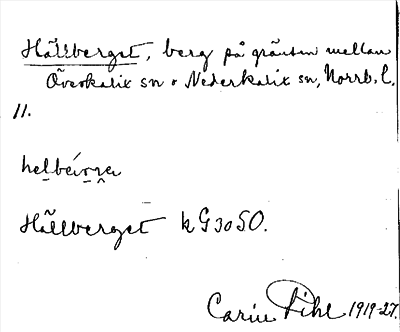 Hällberget, berg på gränsen mellan
Överkalix sn o Nederkalix sn, Norrb. l.
11.
Hällberget k G3050.
Carin Pihl 1919-27.